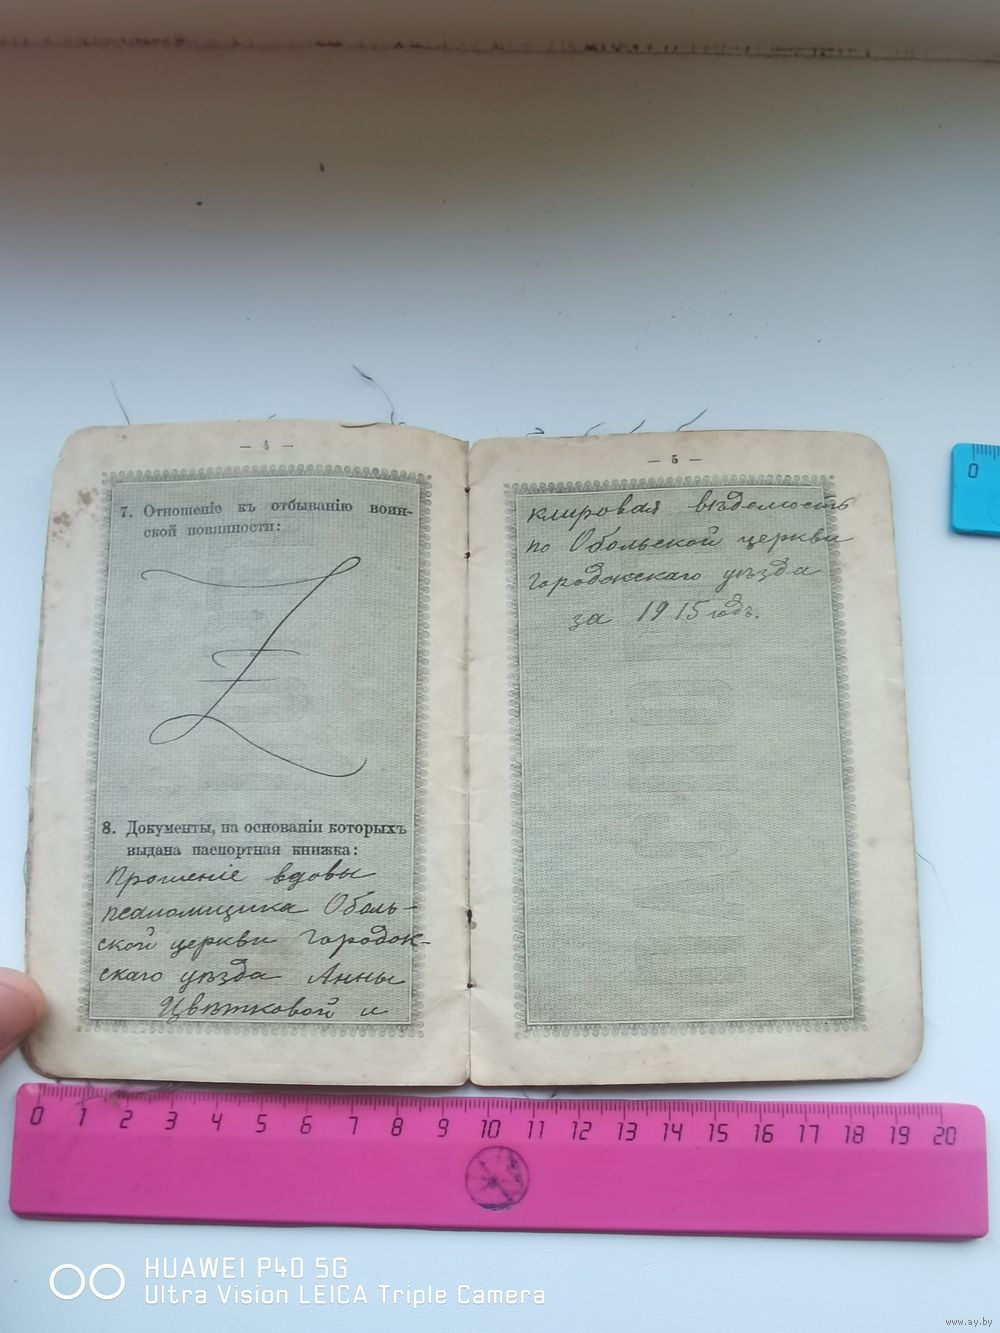 — 4 —
7. Отношеніе къ отбыванію воин-
ской повинности:
8. Документы, на основаніи которыхъ
выдана паспортная книжка:
Прошеніе вдовы
псаломщика Оболь-
ской церкви Городок-
скаго уѣзда Анны
Цвѣтковой и
— 5 —
клировая вѣдомость
по Обольской церкви
Городокскаго уѣзда
за 1915 годъ.
ПАСПОРТ
0
0 1 2 3 4 5 6 7 8 9 10 11 12 13 14 15 16 17 18 19 20
HUAWEI P40 5G
Ultra Vision LEICA Triple Camera
www.ay.by